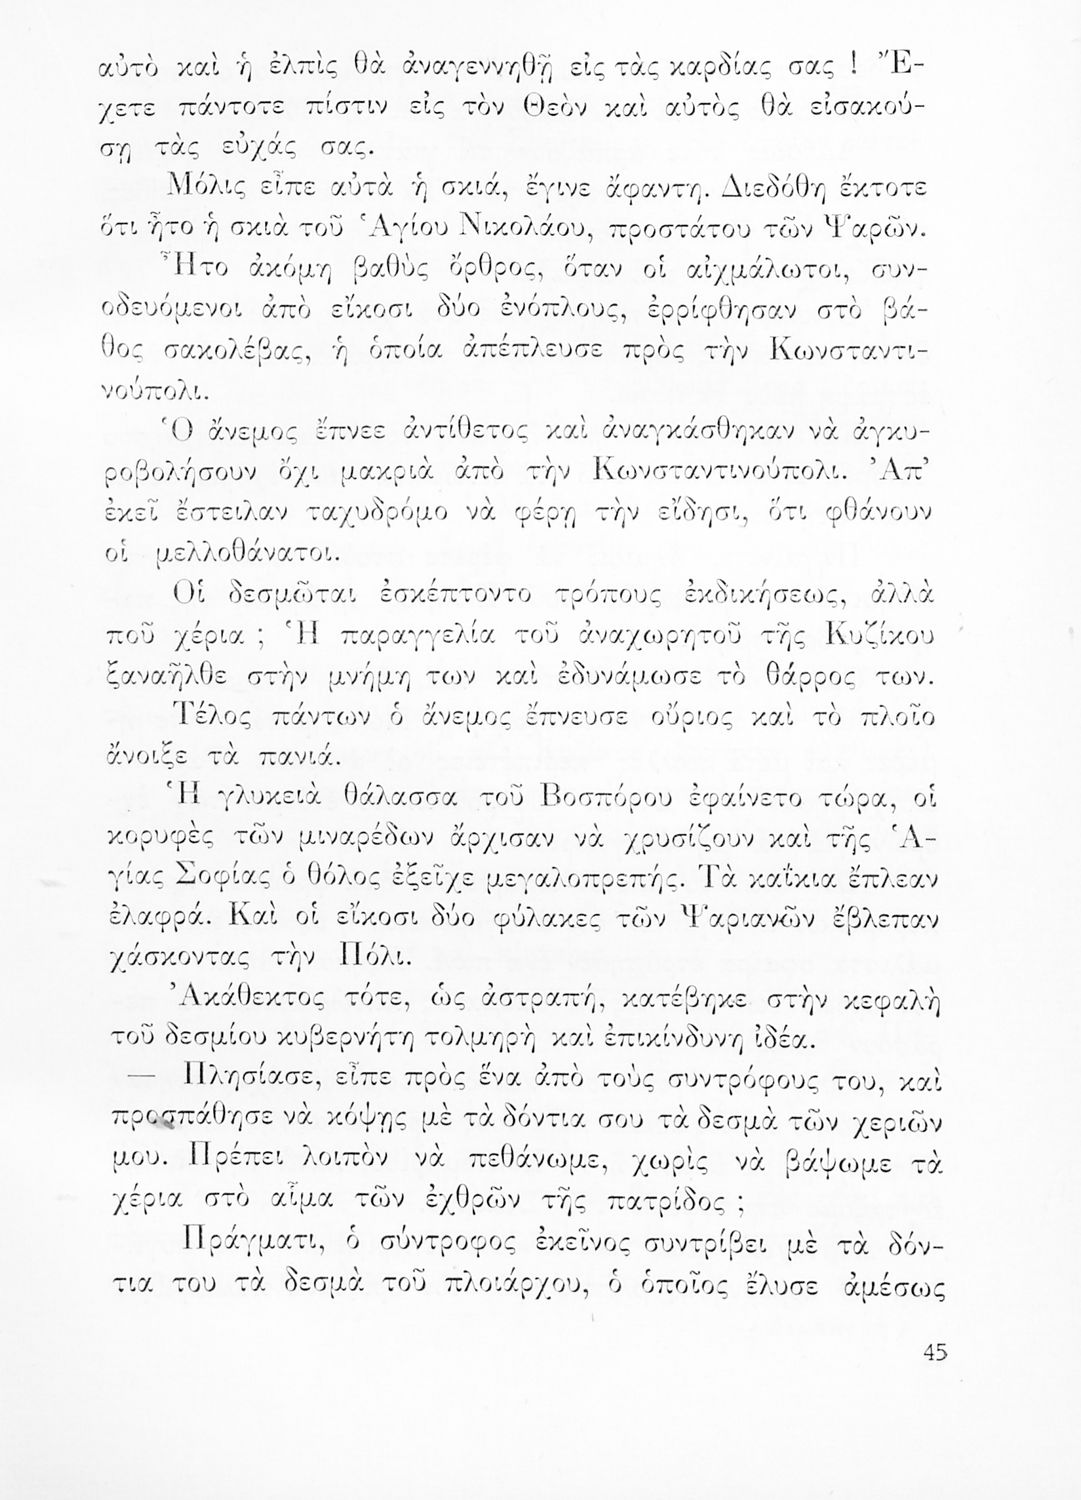 αὐτὸ καὶ ἡ ἐλπὶς θὰ ἀναγεννηθῇ εἰς τὰς καρδίας σας ! Ἔ-
χετε πάντοτε πίστιν εἰς τὸν Θεὸν καὶ αὐτὸς θὰ εἰσακού-
σῃ τὰς εὐχάς σας.
Μόλις εἶπε αὐτὰ ἡ σκιά, ἔγινε ἄφαντη. Διεδόθη ἔκτοτε
ὅτι ἦτο ἡ σκιὰ τοῦ Ἁγίου Νικολάου, προστάτου τῶν Ψαρῶν.
Ἦτο ἀκόμη βαθὺς ὄρθρος, ὅταν οἱ αἰχμάλωτοι, συν-
οδευόμενοι ἀπὸ εἴκοσι δύο ἐνόπλους, ἐρρίφθησαν στὸ βά-
θος σακολέβας, ἡ ὁποία ἀπέπλευσε πρὸς τὴν Κωνσταντι-
νούπολι.
Ὁ ἄνεμος ἔπνεε ἀντίθετος καὶ ἀναγκάσθηκαν νὰ ἀγκυ-
ροβολήσουν ὄχι μακριὰ ἀπὸ τὴν Κωνσταντινούπολι. Ἀπ’
ἐκεῖ ἔστειλαν ταχυδρόμο νὰ φέρῃ τὴν εἴδησι, ὅτι φθάνουν
οἱ μελλοθάνατοι.
Οἱ δεσμῶται ἐσκέπτοντο τρόπους ἐκδικήσεως, ἀλλὰ
ποῦ χέρια ; Ἡ παραγγελία τοῦ ἀναχωρητοῦ τῆς Κυζίκου
ξαναῆλθε στὴν μνήμη των καὶ ἐδυνάμωσε τὸ θάρρος των.
Τέλος πάντων ὁ ἄνεμος ἔπνευσε οὔριος καὶ τὸ πλοῖο
ἄνοιξε τὰ πανιά.
Ἡ γλυκειὰ θάλασσα τοῦ Βοσπόρου ἐφαίνετο τώρα, οἱ
κορυφὲς τῶν μιναρέδων ἄρχισαν νὰ χρυσίζουν καὶ τῆς Ἁ-
γίας Σοφίας ὁ θόλος ἐξεῖχε μεγαλοπρεπής. Τὰ καΐκια ἔπλεαν
ἐλαφρά. Καὶ οἱ εἴκοσι δύο φύλακες τῶν Ψαριανῶν ἔβλεπαν
χάσκοντας τὴν Πόλι.
Ἀκάθεκτος τότε, ὡς ἀστραπή, κατέβηκε στὴν κεφαλὴ
τοῦ δεσμίου κυβερνήτη τολμηρὴ καὶ ἐπικίνδυνη ἰδέα.
— Πλησίασε, εἶπε πρὸς ἕνα ἀπὸ τοὺς συντρόφους του, καὶ
προσπάθησε νὰ κόψῃς μὲ τὰ δόντια σου τὰ δεσμὰ τῶν χεριῶν
μου. Πρέπει λοιπὸν νὰ πεθάνωμε, χωρὶς νὰ βάψωμε τὰ
χέρια στὸ αἷμα τῶν ἐχθρῶν τῆς πατρίδος ;
Πράγματι, ὁ σύντροφος ἐκεῖνος συντρίβει μὲ τὰ δόν-
τια του τὰ δεσμὰ τοῦ πλοιάρχου, ὁ ὁποῖος ἔλυσε ἀμέσως
45